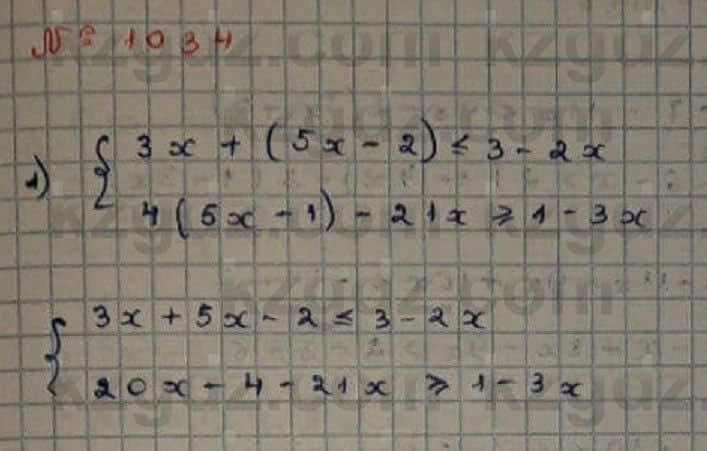 № 1034
1) { 3x + (5x - 2) ≤ 3 - 2x
4(5x - 1) - 21x ≥ 1 - 3x
{ 3x + 5x - 2 ≤ 3 - 2x
20x - 4 - 21x ≥ 1 - 3x
kzguz.com kzguz.